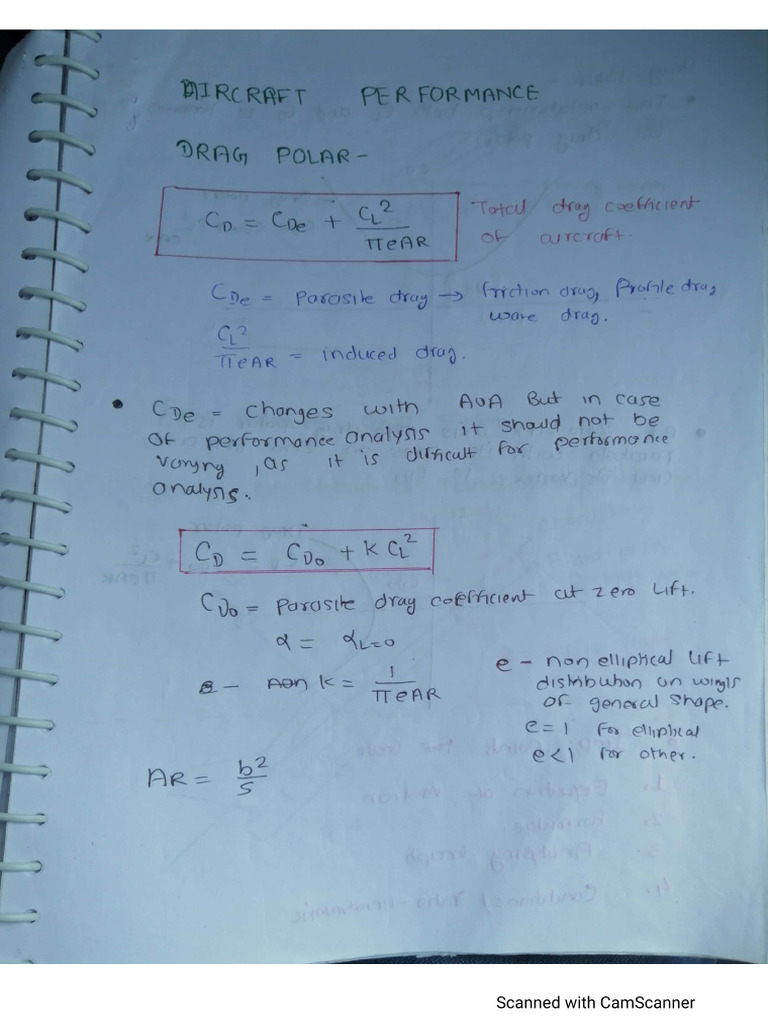 AIRCRAFT PERFORMANCE
DRAG POLAR -
C_D = C_De + C_L^2 / πeAR
Total drag coefficient
of aircraft.
C_De = Parasite drag → friction drag, Profile drag
wave drag.
C_L^2 / πeAR = induced drag.
• C_De = changes with AOA But in case
of performance analysis it should not be
varying, as it is difficult for performance
analysis.
C_D = C_D0 + K C_L^2
C_D0 = Parasite drag coefficient at zero lift.
α = α_L=0
K = 1 / πeAR
e - non elliptical lift
distribution on wings
of general shape.
e = 1 for elliptical
e < 1 for other.
AR = b^2 / S
Scanned with CamScanner